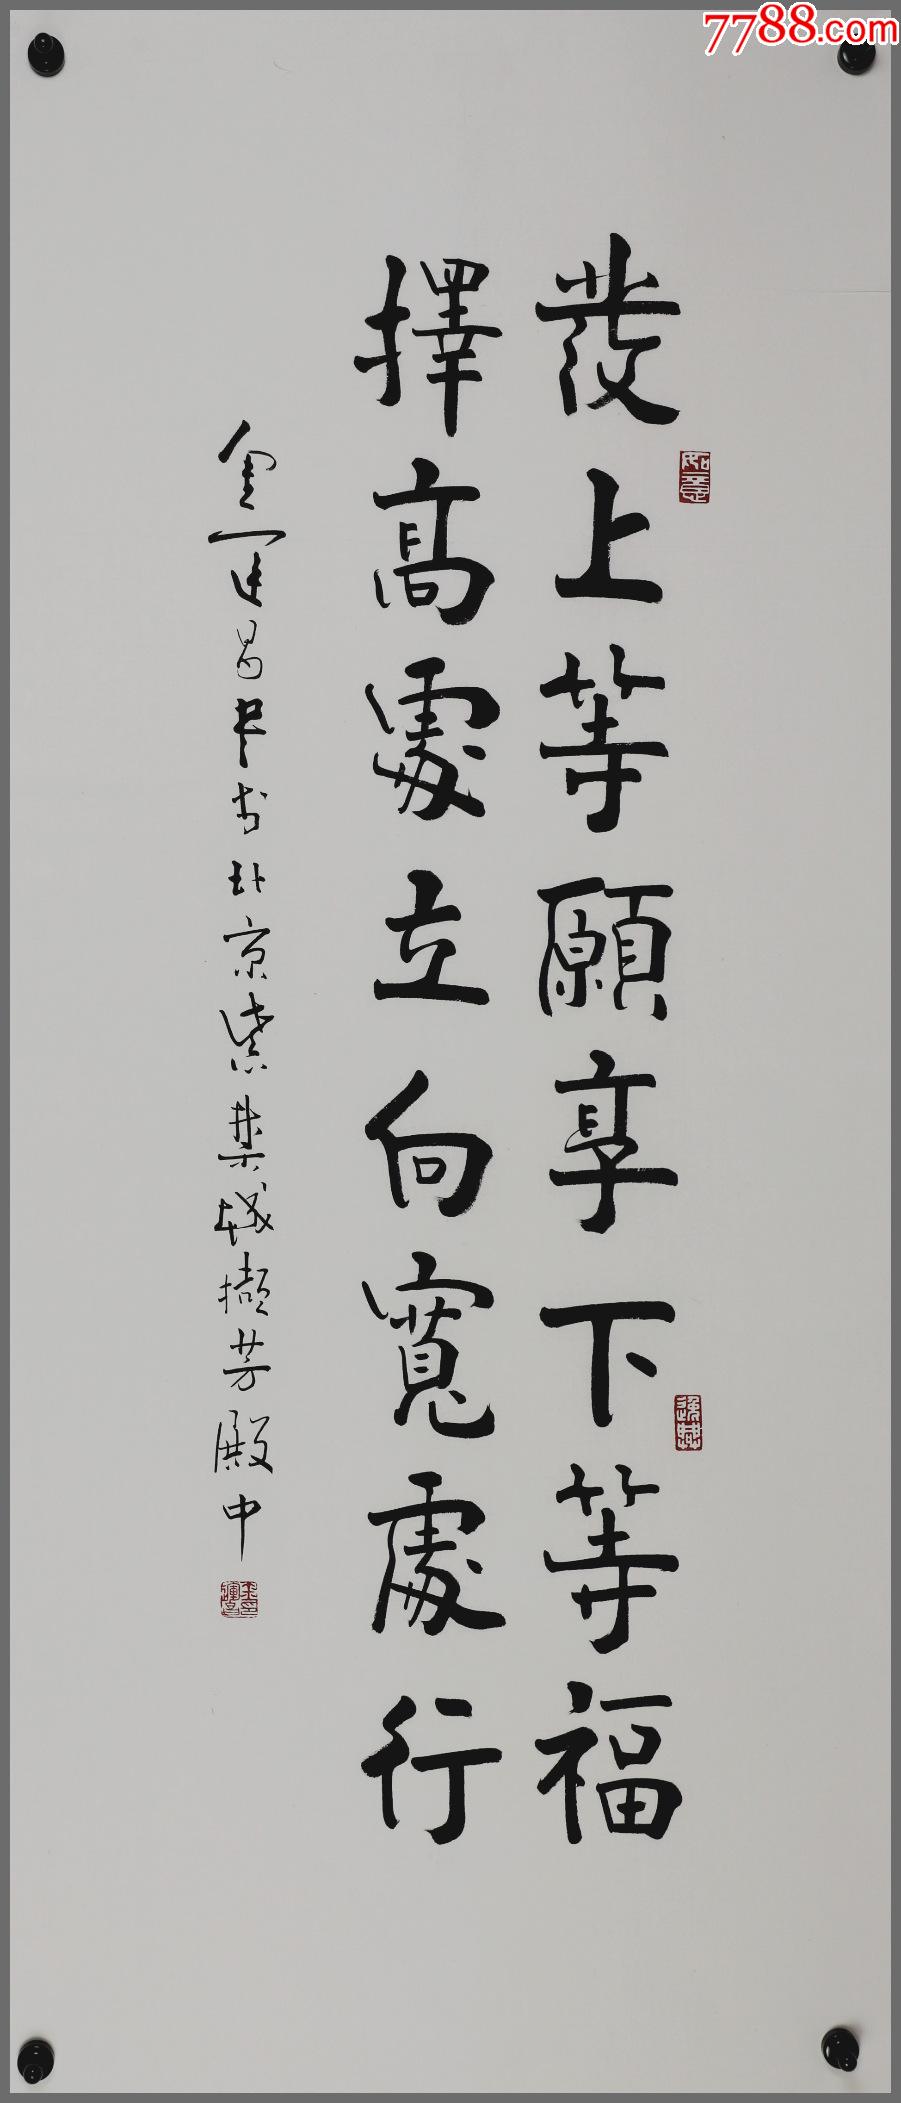 7788.com
發上等願享下等福
擇高處立向寬處行
金運昌书北京紫禁城擷芳殿中
如意